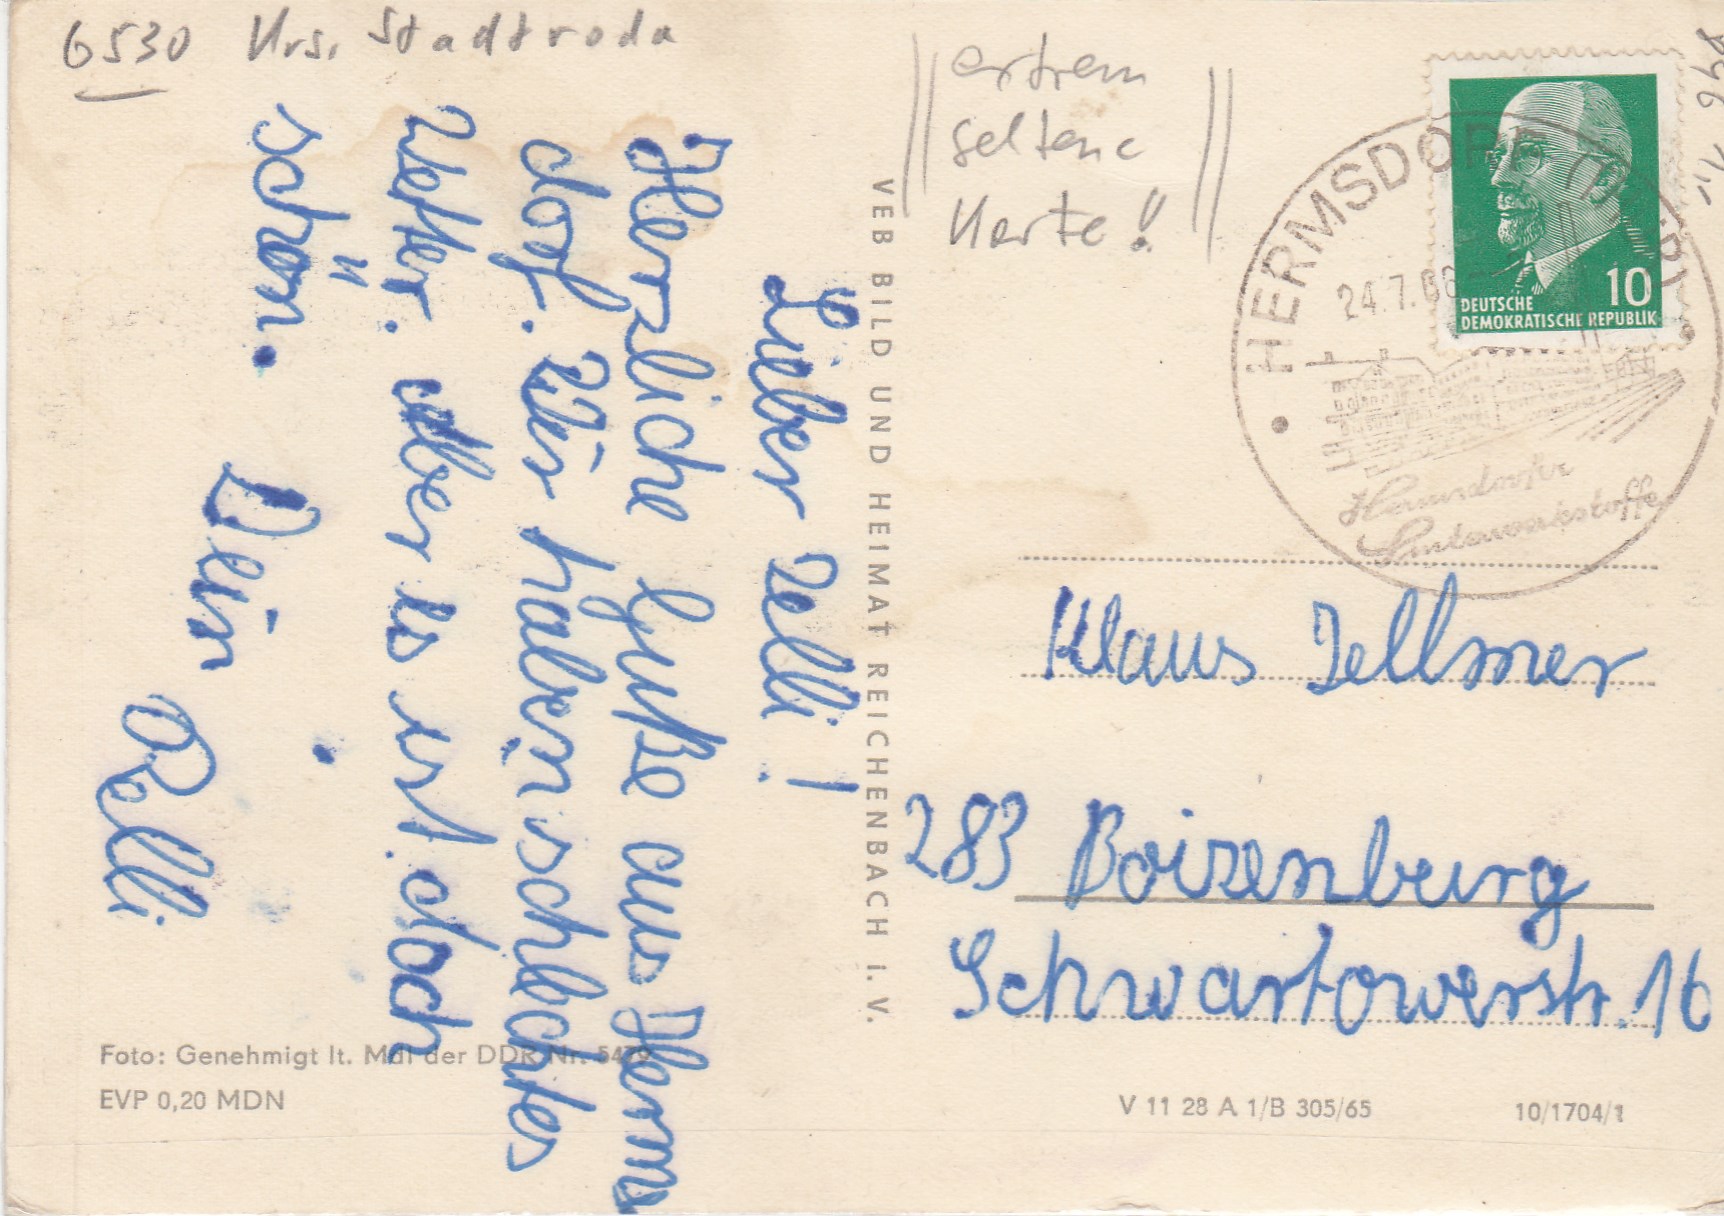 6530 Krs. Stadtroda
extrem
seltene
Karte!
Lieber Zelli!
Herzliche Grüße aus Herms
dorf. Wir haben schlechtes
Wetter. Aber es ist doch
schön.
Dein
Pelli
VEB BILD UND HEIMAT REICHENBACH I. V.
HERMSDORF (THÜR)
24.7.66
Hermsdorfer
Sinterwerkstoffe
10
DEUTSCHE
DEMOKRATISCHE REPUBLIK
Klaus Zellmer
283 Boizenburg
Schwartowerstr. 16
Foto: Genehmigt lt. MdI der DDR Nr. 5479
EVP 0,20 MDN
V 11 28 A 1/B 305/65
10/1704/1